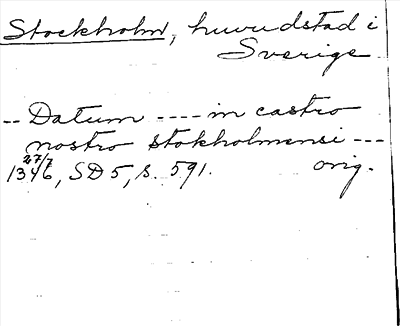 Stockholm, huvudstad i
Sverige
-- Datum ---- in castro
nostro stokholmensi ---
27/7
1346, SD 5, s. 591. orig.